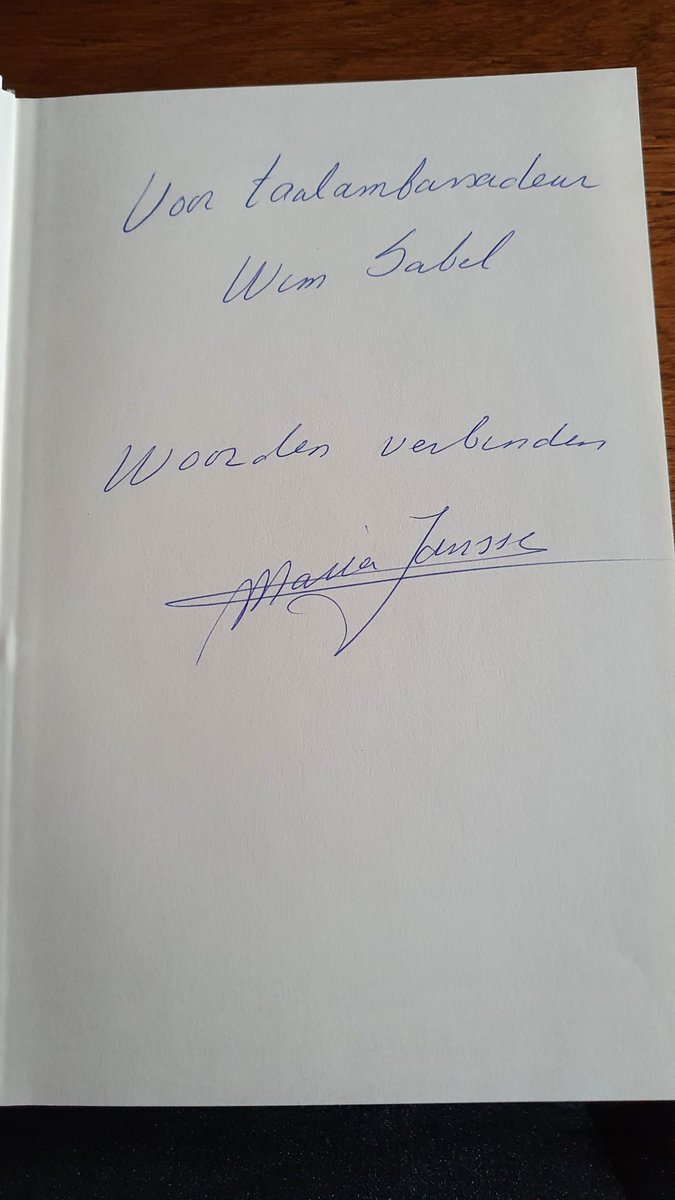 Voor taalambassadeur
Wim Sabel
Woorden verbinden
Maria Jansse